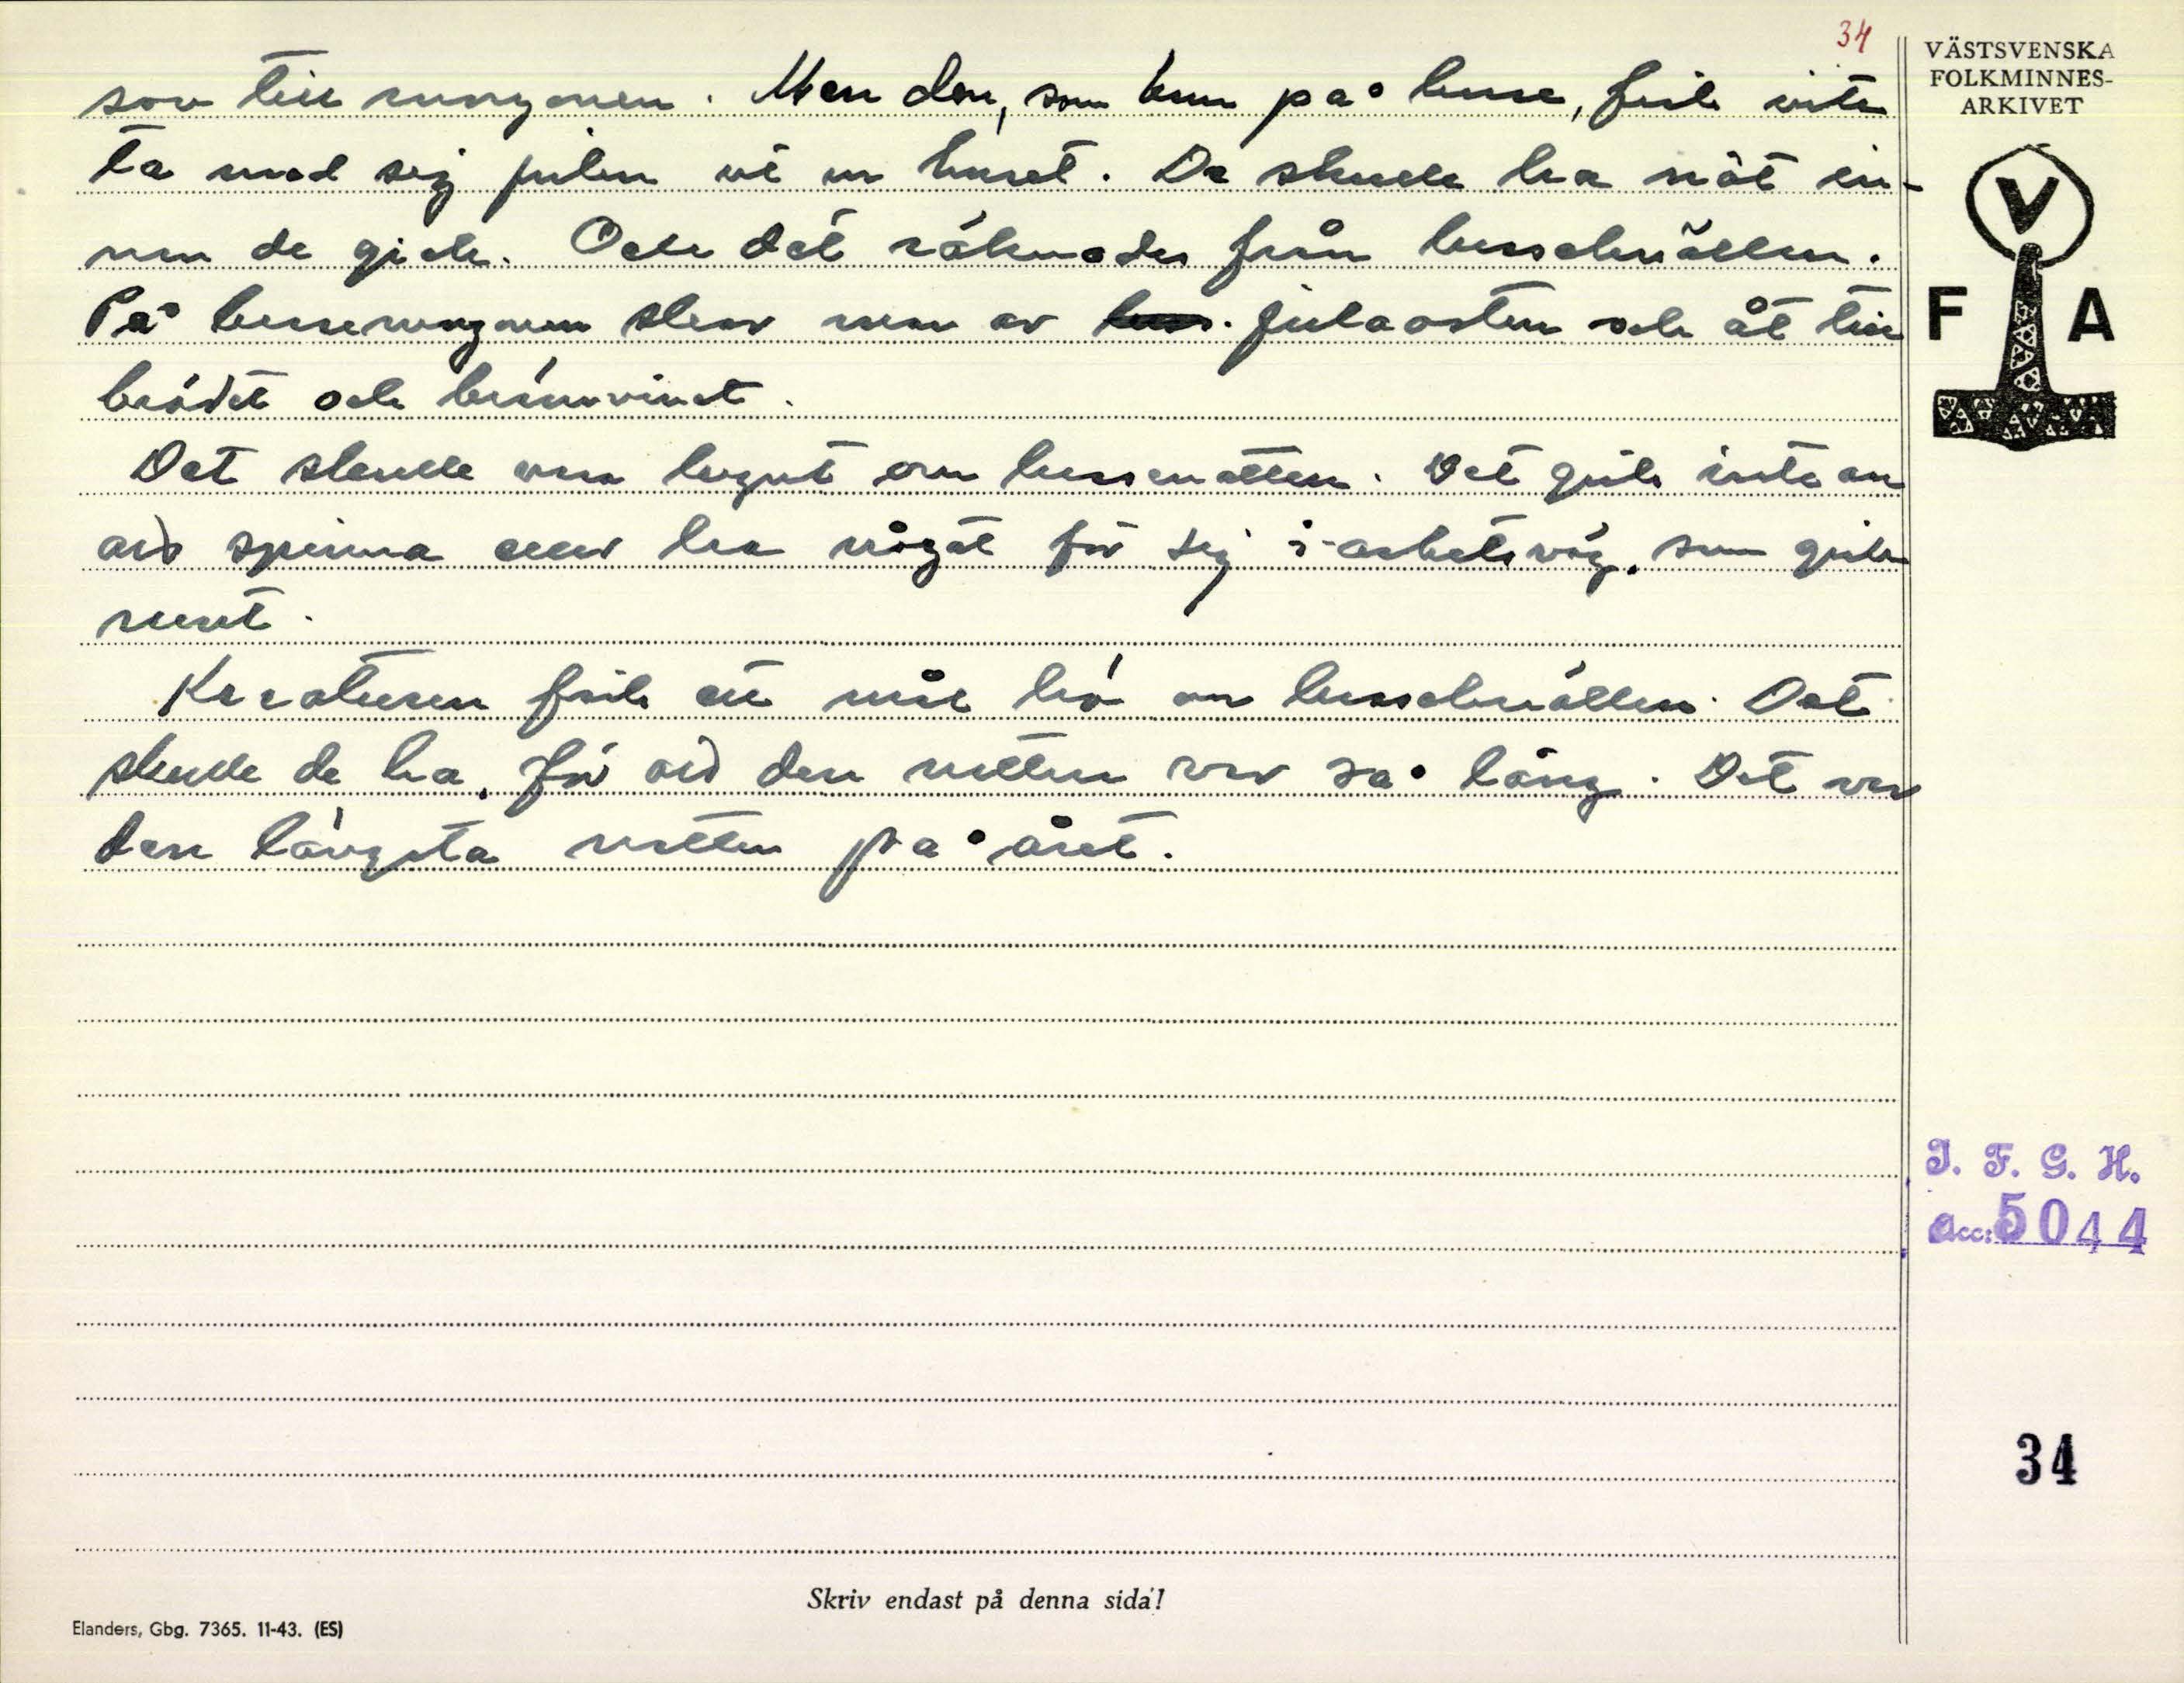 34
sov till morgonen. Men den, som kom på lusse, fick inte
ta med sig julen ut ur huset. De skulle ha nåt in-
nan de gick. Och det räknades från lusseknällen.
På lussemorgonen skar man av juleosten och åt till
brödet och brännvinet.
Det skulle vara lugnt om lussenatten. Det gick inte an
att spinna eller ha något för sig i arbetsväg, som gick
runt.
Kreaturen fick ett mål hö om lusseknällen. Det
skulle de ha, för att den natten var så lång. Det var
den längsta natten på året.
VÄSTSVENSKA
FOLKMINNES-
ARKIVET
V
F A
I. F. G. H.
Acc: 5044
34
Skriv endast på denna sida!
Elanders, Gbg. 7365. 11-43. (ES)